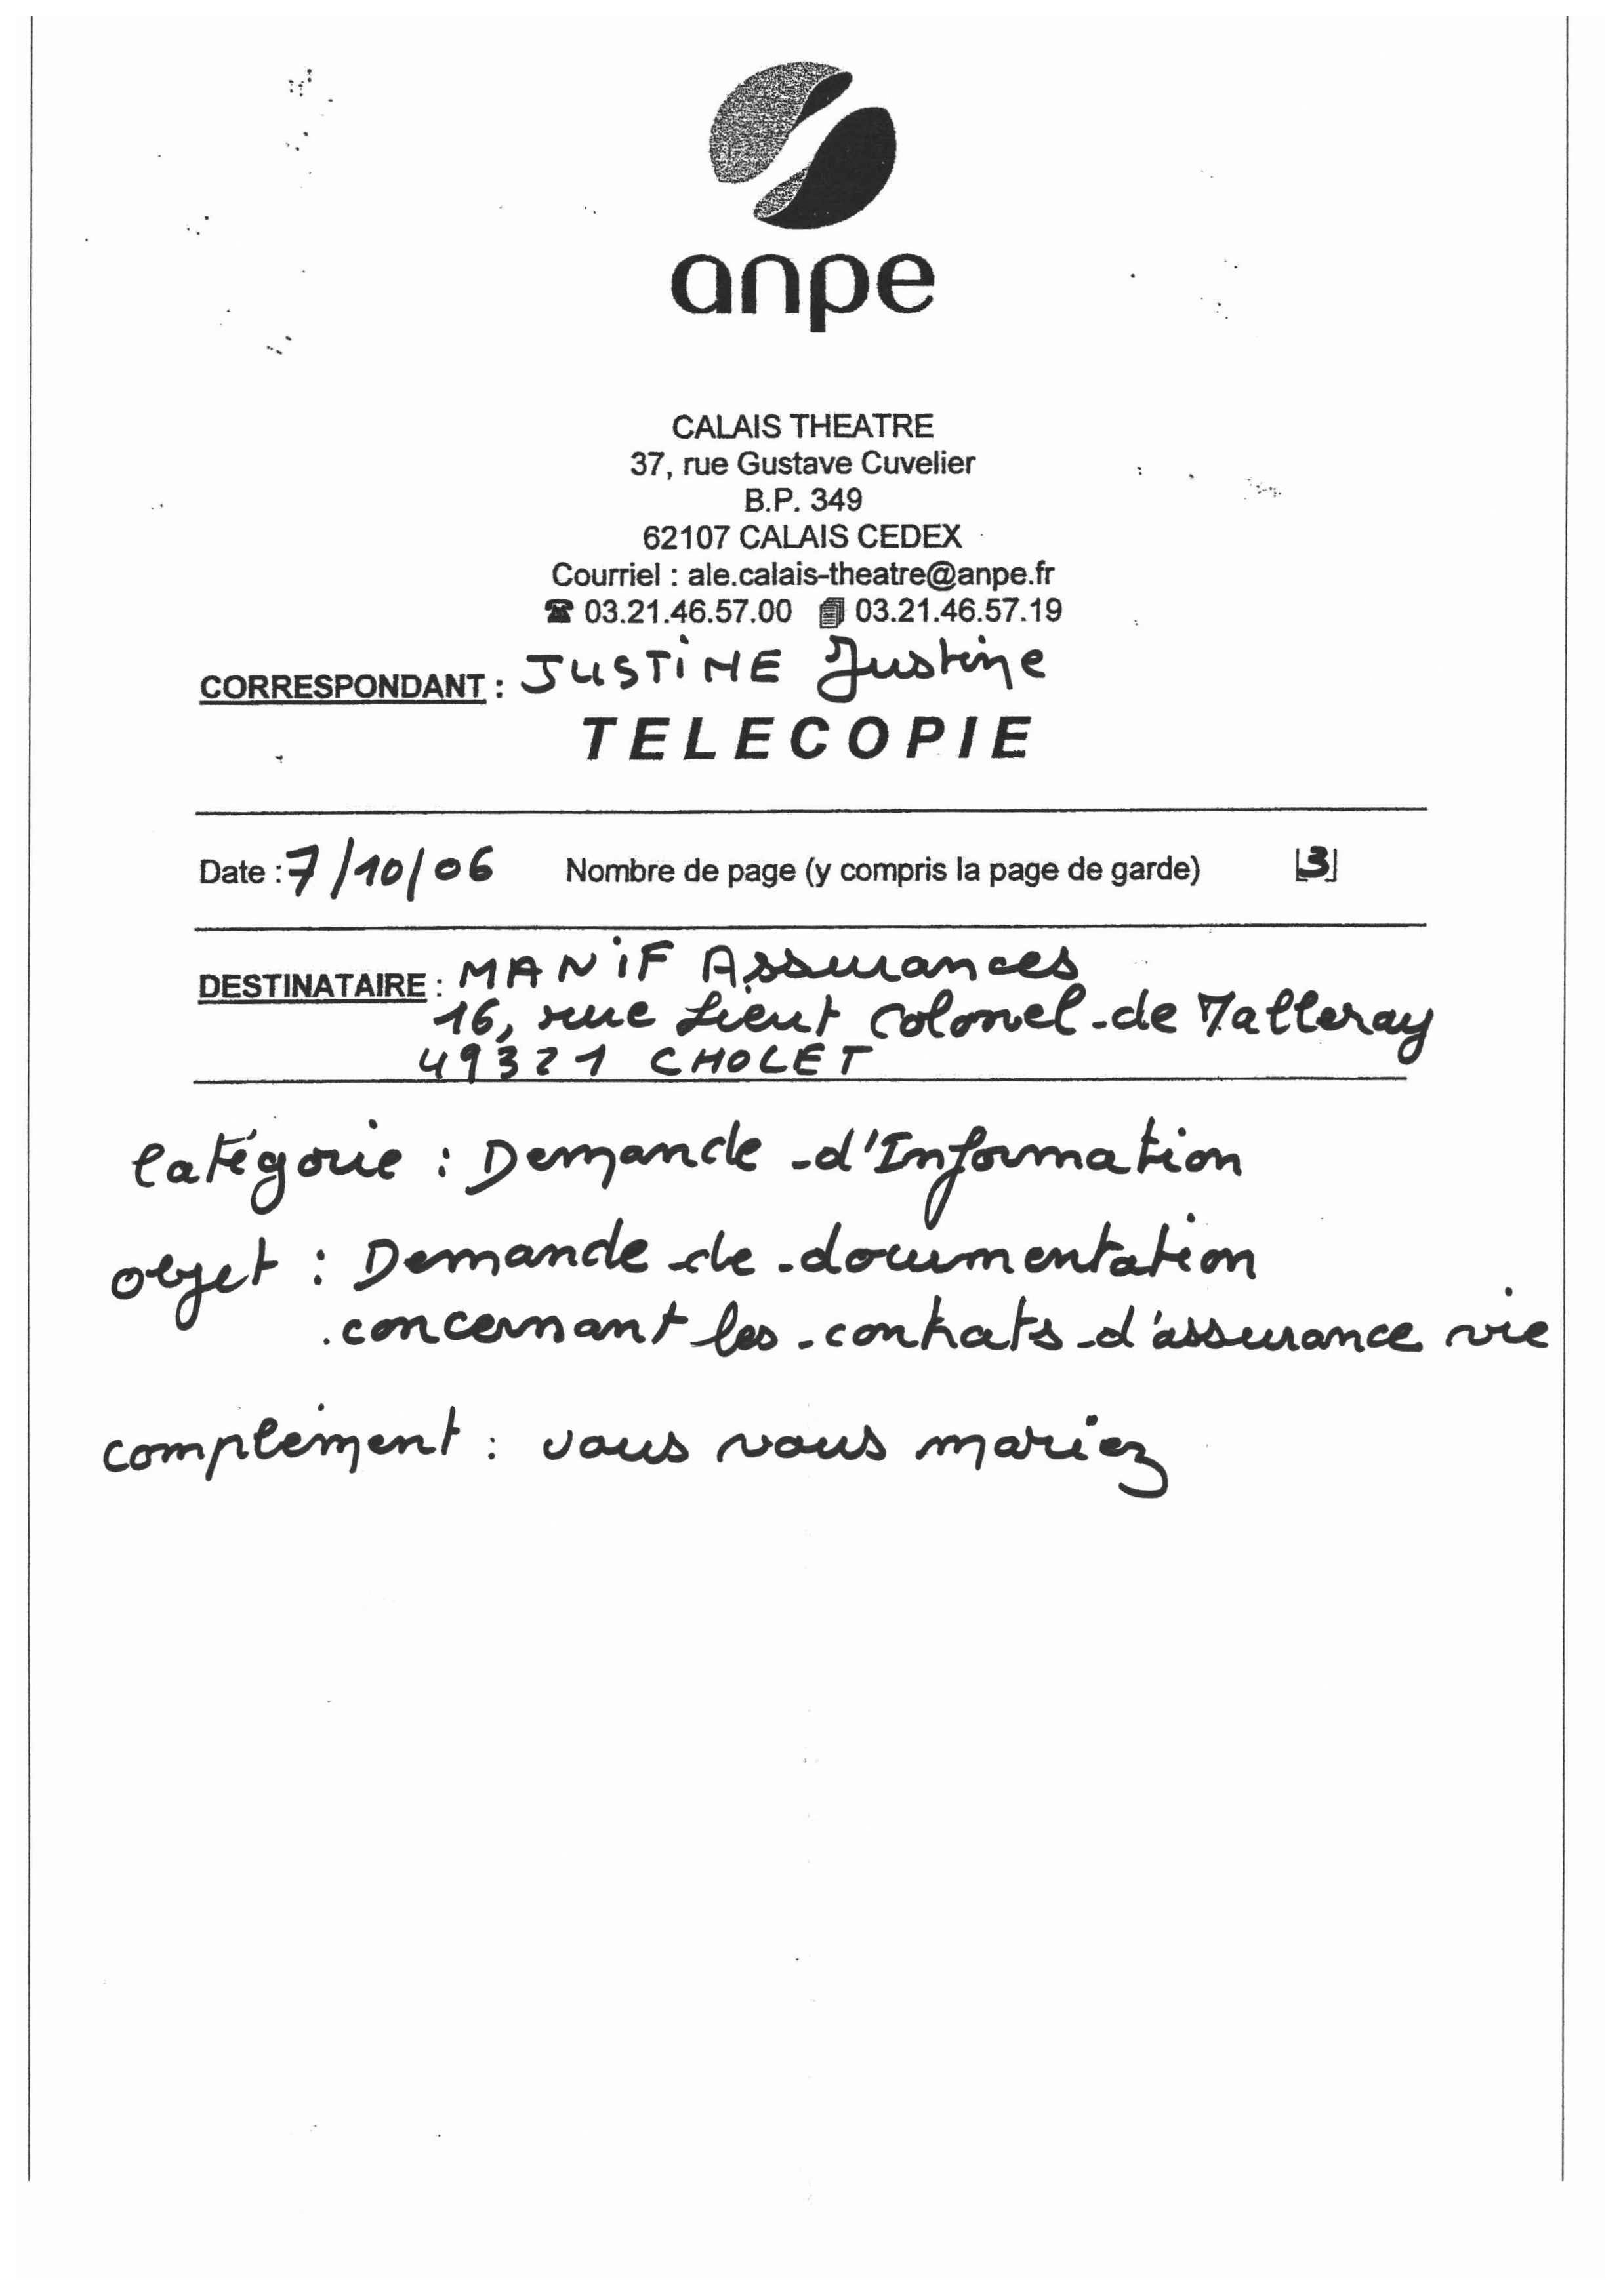 anpe
CALAIS THEATRE
37, rue Gustave Cuvelier
B.P. 349
62107 CALAIS CEDEX
Courriel : ale.calais-theatre@anpe.fr
☎ 03.21.46.57.00 03.21.46.57.19
CORRESPONDANT : JUSTINE Justine
TELECOPIE
Date : 7/10/06 Nombre de page (y compris la page de garde) |3|
DESTINATAIRE : MANIF Assurances
16, rue Lieut Colonel de Malleray
49321 CHOLET
Catégorie : Demande d'Information
objet : Demande de documentation
concernant les contrats d'assurance vie
complément : vous vous mariez